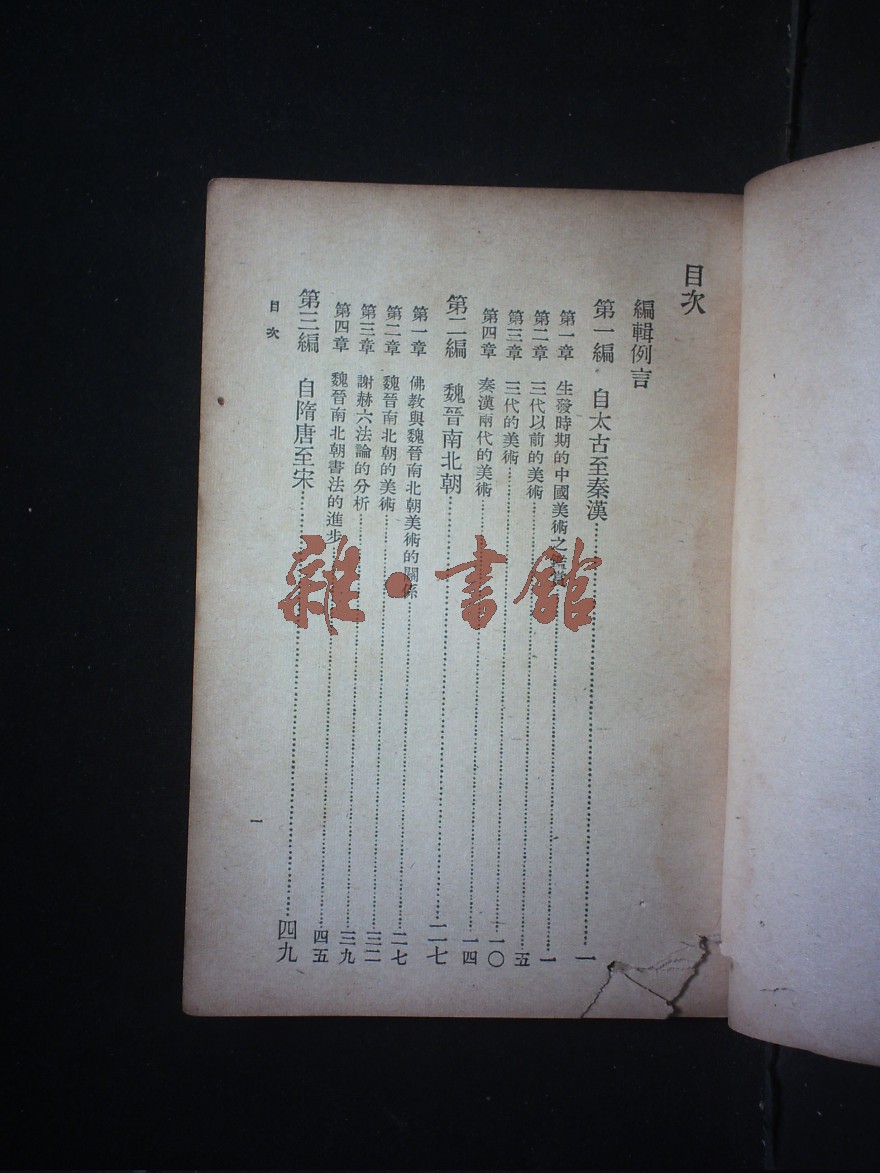 目次
編輯例言
第一編　自太古至秦漢……一
第一章　生發時期的中國美術之鑑賞……一
第二章　三代以前的美術……五
第三章　三代的美術……一〇
第四章　秦漢兩代的美術……一四
第二編　魏晉南北朝……二七
第一章　佛教與魏晉南北朝美術的關係……二七
第二章　魏晉南北朝的美術……三二
第三章　謝赫六法論的分析……三九
第四章　魏晉南北朝書法的進步……四五
第三編　自隋唐至宋……四九
目次
一
雜·書館